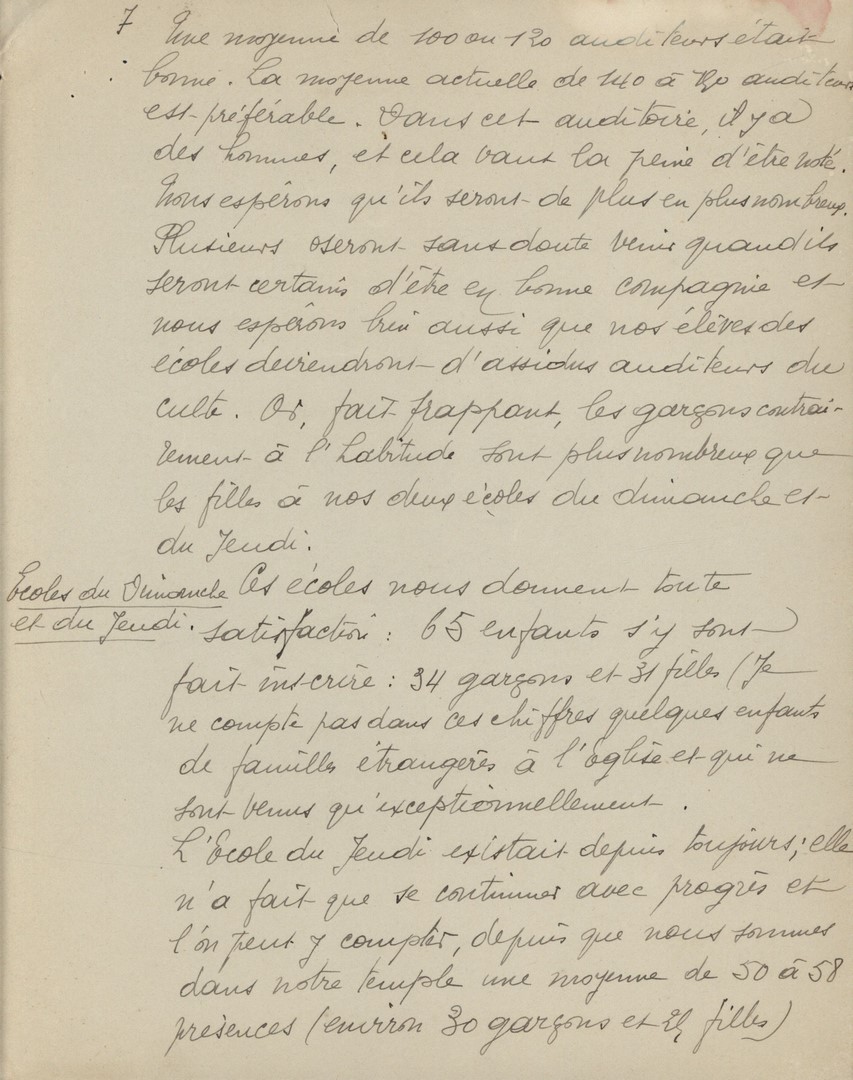 7
Une moyenne de 100 ou 120 auditeurs était
bonne. La moyenne actuelle de 140 à auditeurs
est préférable. Dans cet auditoire, il y a
des hommes, et cela vaut la peine d'être noté.
Nous espérons qu'ils seront de plus en plus nombreux.
Plusieurs oseront sans doute venir quand ils
seront certains d'être en bonne compagnie et
nous espérons bien aussi que nos élèves des
écoles deviendront d'assidus auditeurs du
culte. Or, fait frappant, les garçons contrai-
rement à l'habitude sont plus nombreux que
les filles à nos deux écoles du dimanche et
du Jeudi.
Ecoles du Dimanche
et du Jeudi.
Ces écoles nous donnent toute
satisfaction : 65 enfants s'y sont
fait inscrire : 34 garçons et 31 filles (Je
ne compte pas dans ces chiffres quelques enfants
de familles étrangères à l'Eglise et qui ne
sont venus qu'exceptionnellement.
L'Ecole du Jeudi existait depuis toujours; elle
n'a fait que se continuer avec progrès et
l'on peut y compter, depuis que nous sommes
dans notre temple une moyenne de 50 à 58
présences (environ 30 garçons et filles)